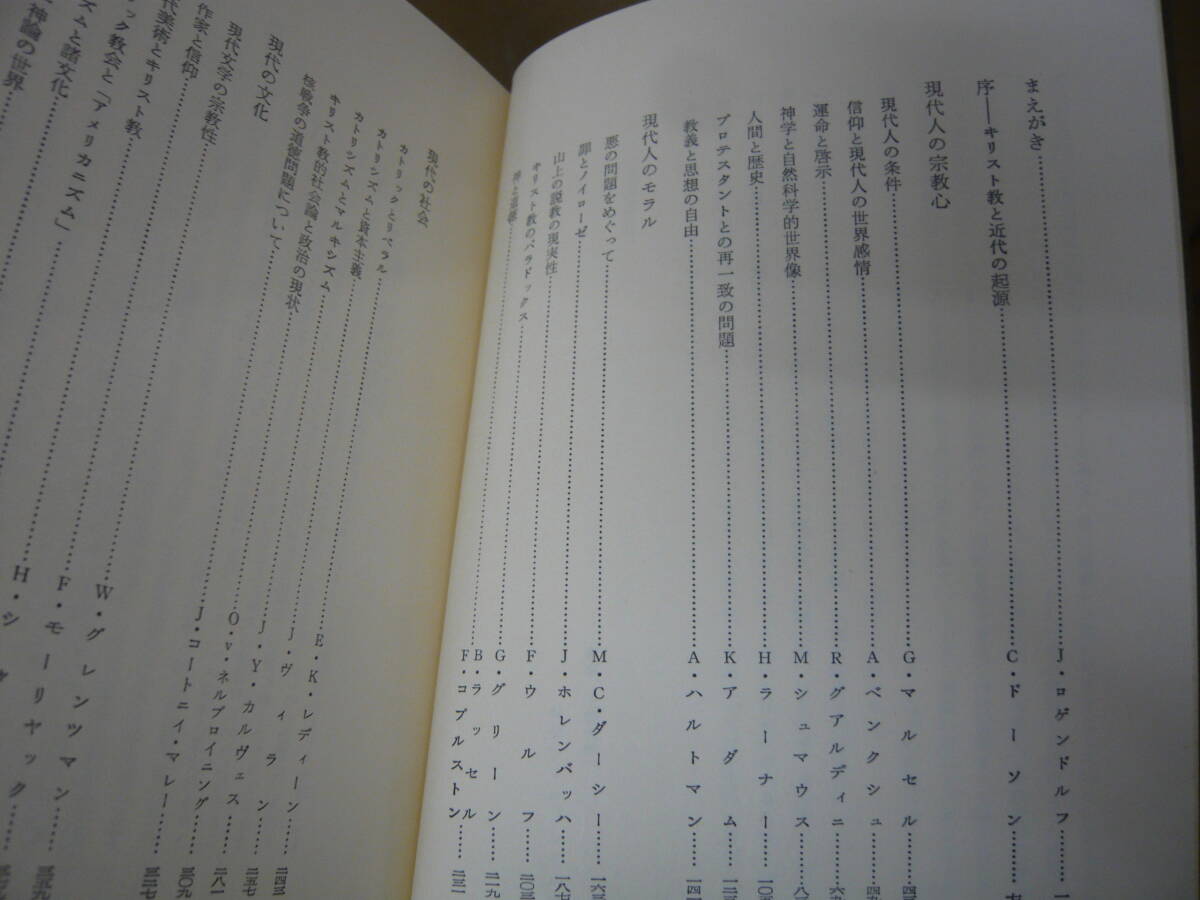 まえがき……J・ロゲンドルフ……一
序――キリスト教と近代の起源……C・ドーソン……
現代人の宗教心
現代人の条件……G・マルセル……
信仰と現代人の世界感情……A・ベンクシュ……
運命と啓示……R・グアルディニ……
神学と自然科学的世界像……M・シュマウス……
人間と歴史……H・ラーナー……
プロテスタントとの再一致の問題……K・アダム……
教義と思想の自由……A・ハルトマン……一四一
現代人のモラル
悪の問題をめぐって……M・C・ダーシー……
罪とノイローゼ……J・ホレンバッハ……一八七
山上の説教の現実性……F・ウルフ……二〇三
キリスト教のパラドックス……G・グリーン……二一九
神と道徳……B・ラッセル F・コプルストン……二三一
現代の社会
カトリックとリベラル……E・K・レディーン……二四三
カトリシズムと資本主義……J・ヴィラン……二五七
カトリシズムとマルキシズム……J・Y・カルヴェス……二八一
キリスト教的社会論と政治の現状……O・v・ネルブロイニング……三〇九
核戦争の道徳問題について……J・コートニィ・マレー……三二七
現代の文化
現代文学の宗教性……W・グレンツマン……三五九
作家と信仰……F・モーリヤック……
代美術とキリスト教……H・シャ
ック教会と「アメリカニズム」
ズムと諸文化……
神論の世界